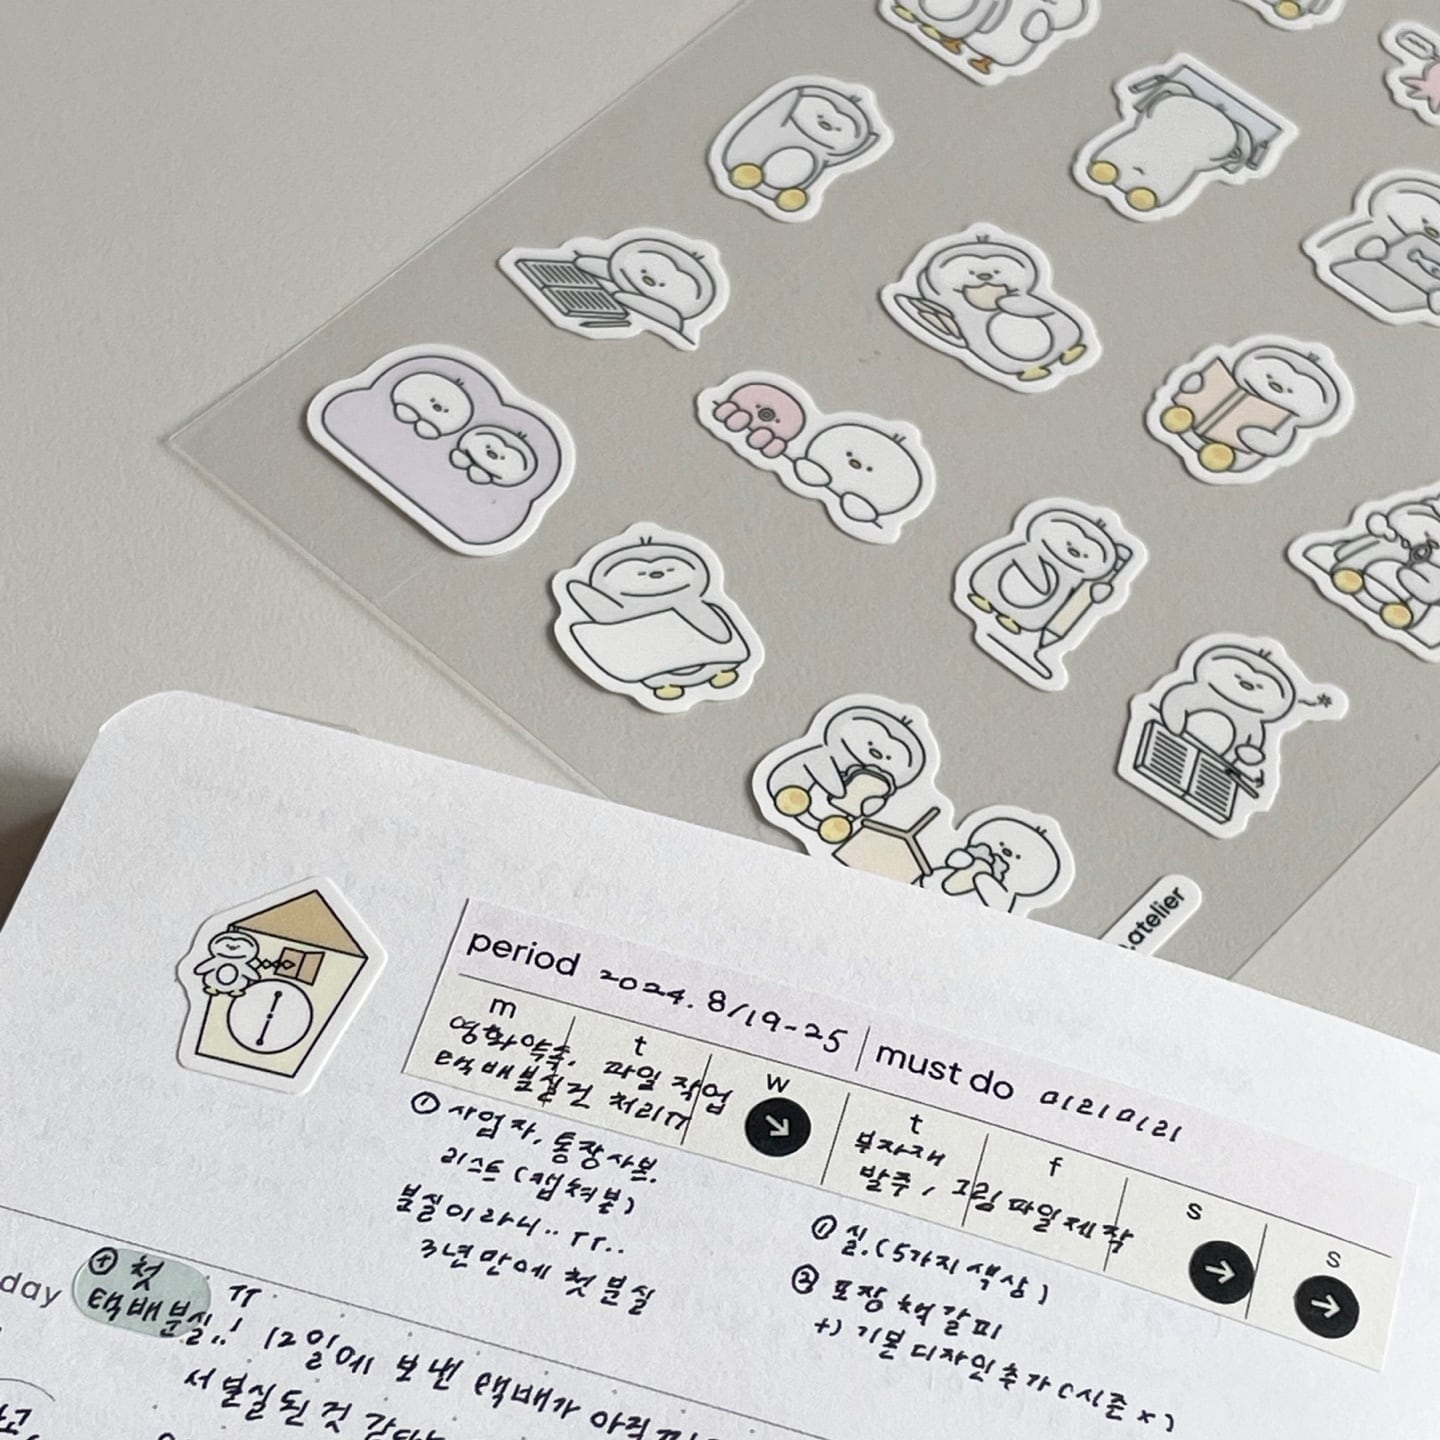 .atelier
period 2024. 8/19-25
must do 미리미리
m
t
w
t
f
s
s
영화약속, 파일 작업
택배분실건 처리ㅠ
부자재
발주, 그림 파일제작
① 사업자, 통장사본.
리스트 (캡쳐본)
분실이라니.. ㅠㅠ..
3년만에 첫 분실
① 실. (5가지 색상)
② 포장 책갈피
+) 기본디자인추가 (시즌 x)
day
⊕ 첫
택배분실..! ㅠ
12일에 보낸 택배가 아직
서 분실된 것 같다